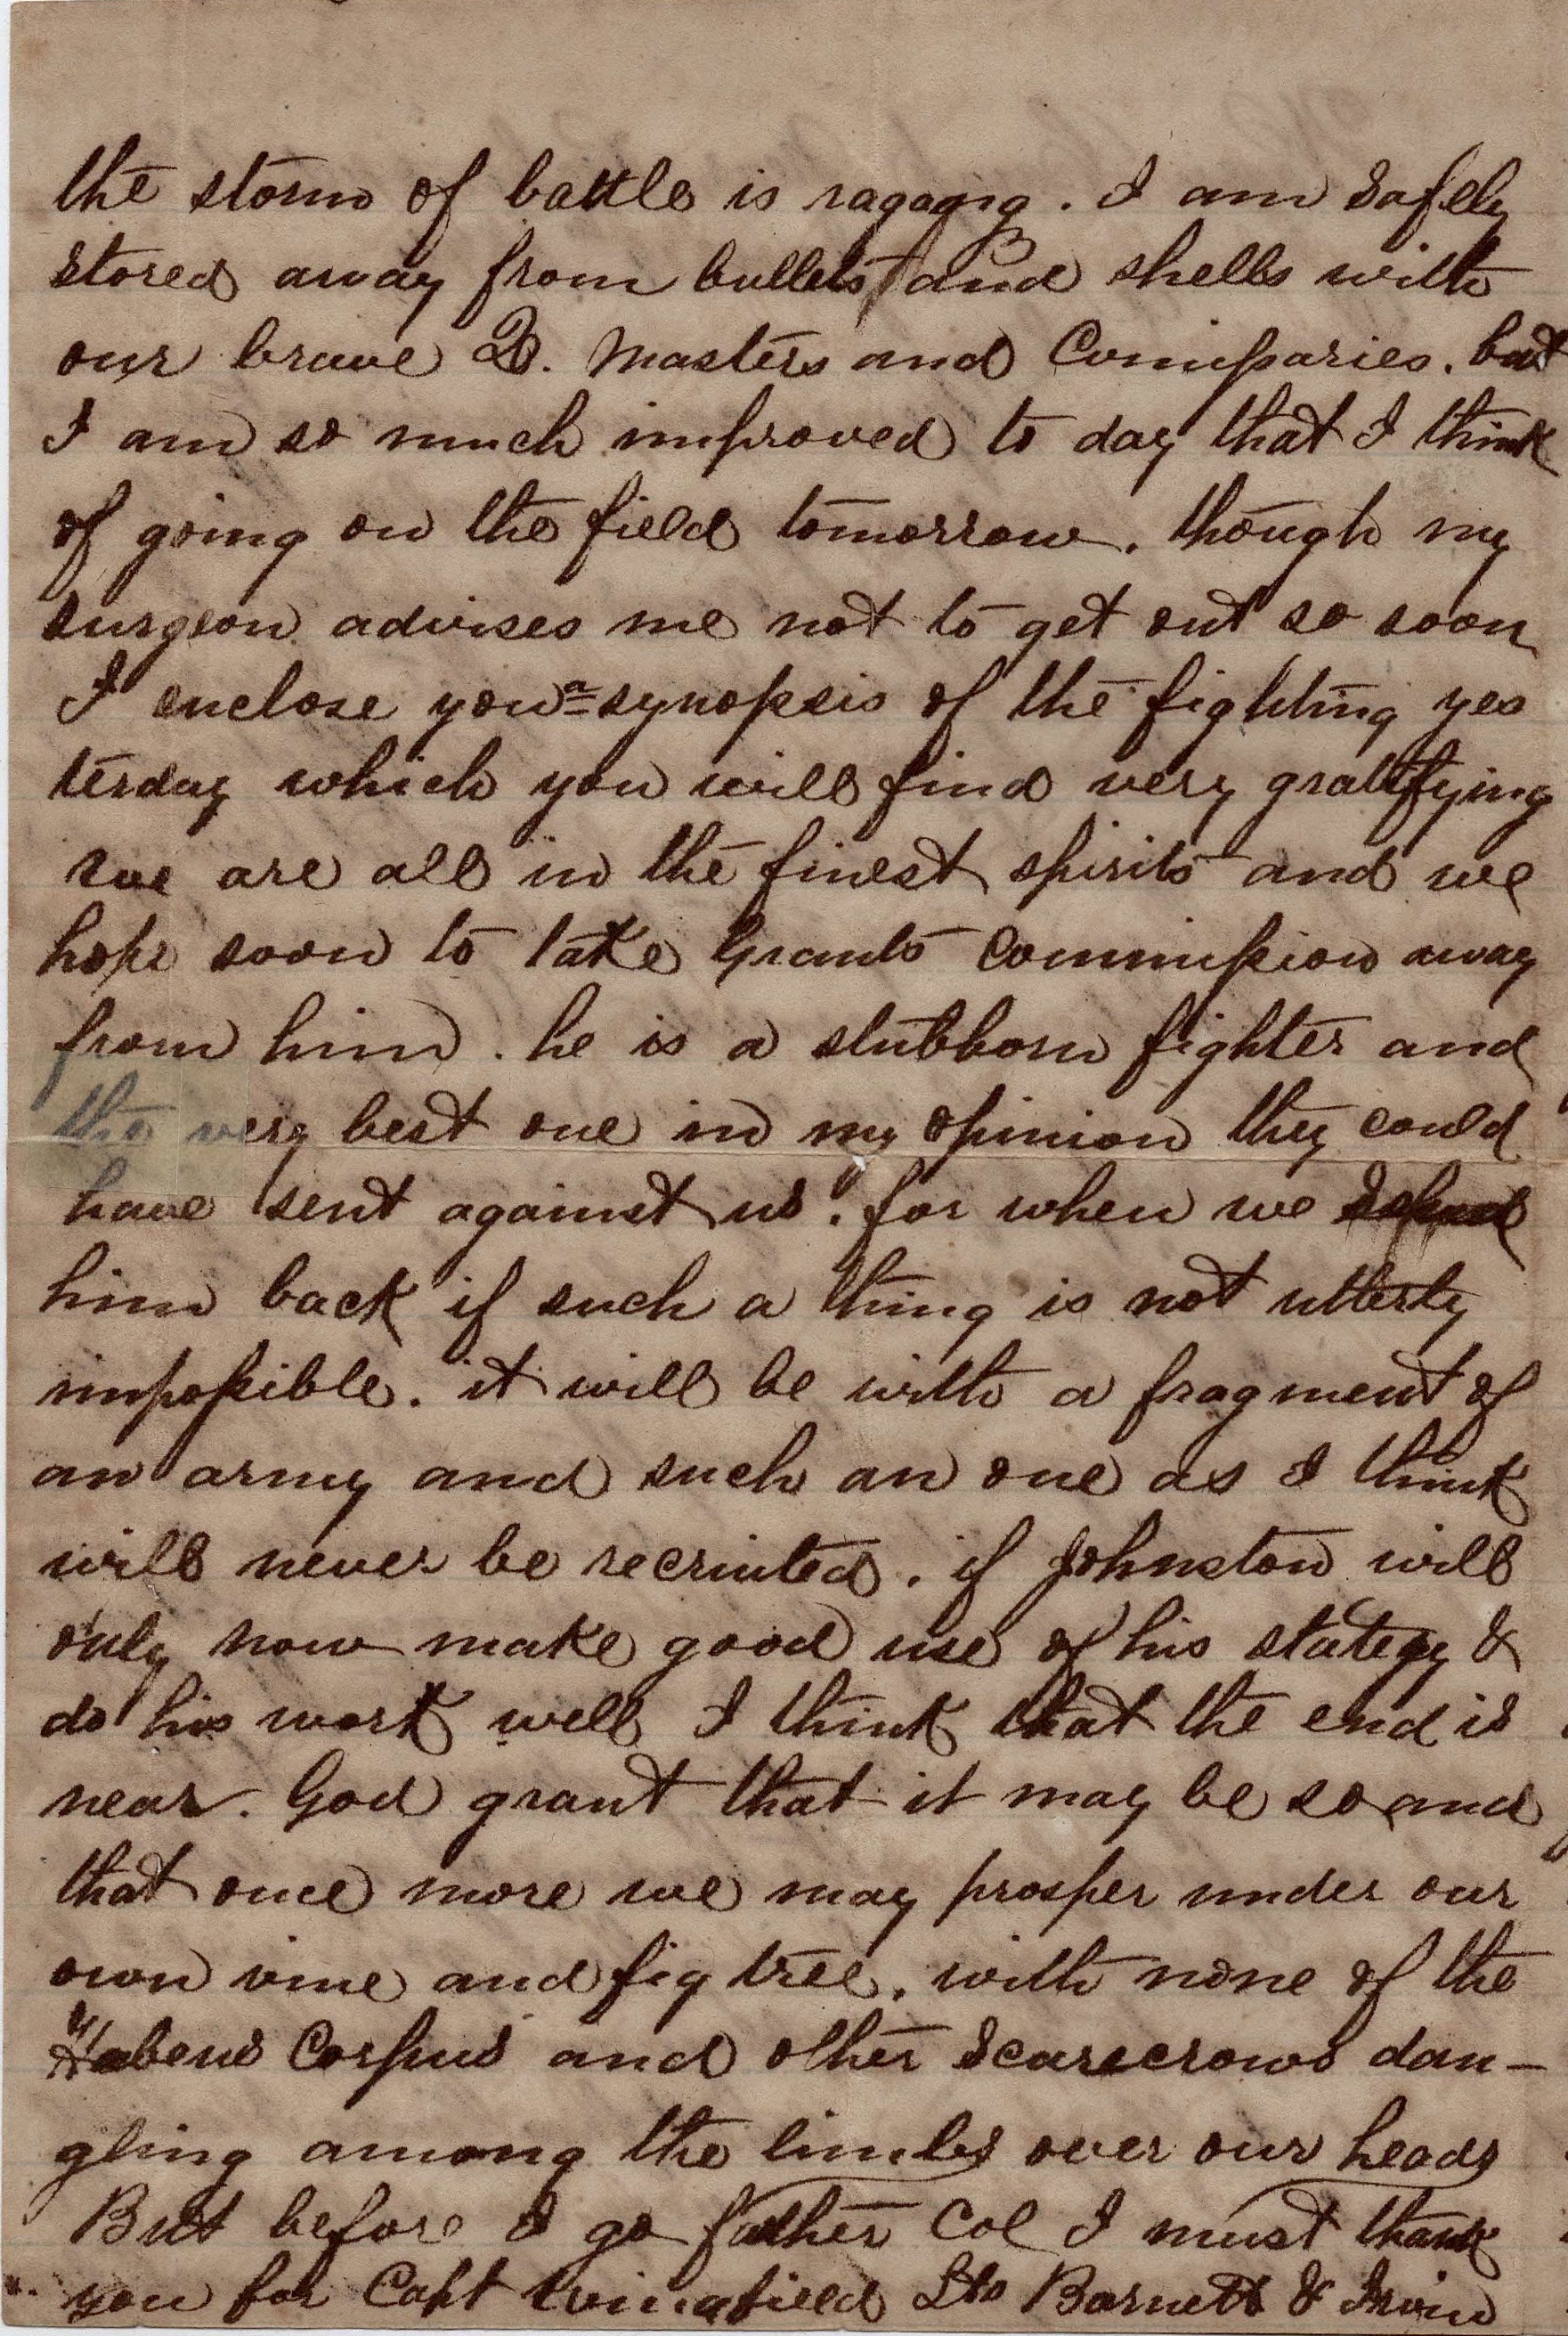 the storm of battle is ragaging. I am safely
stored away from bullets and shells with
our brave Q. Masters and Comissaries. but
I am so much improved to day that I think
of going on the field tomorrow, though my
surgeon advises me not to get out so soon
I enclose you a synopsis of the fighting yes
terday which you will find very gratifying
we are all in the finest spirits and we
hope soon to take Grants Commission away
from him. he is a stubborn fighter and
the very best one in my opinion they could
have sent against us. for when we
him back if such a thing is not utterly
impossible. it will be with a fragment of
an army and such an one as I think
will never be recruited. if Johnston will
only now make good use of his stategy &
do his work well I think that the end is
near. God grant that it may be so and
that once more we may prosper under our
own vine and fig tree, with none of the
Habeus Corpus and other Scarecrows dan-
gling among the limbs over our heads
But before I go father Col I must thank
you for Capt Wingfield Lts Barnett & Irvin